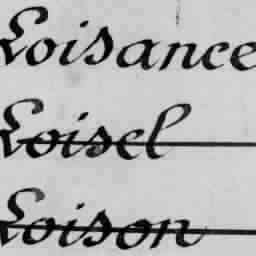 Loisance
Loisel
Loison